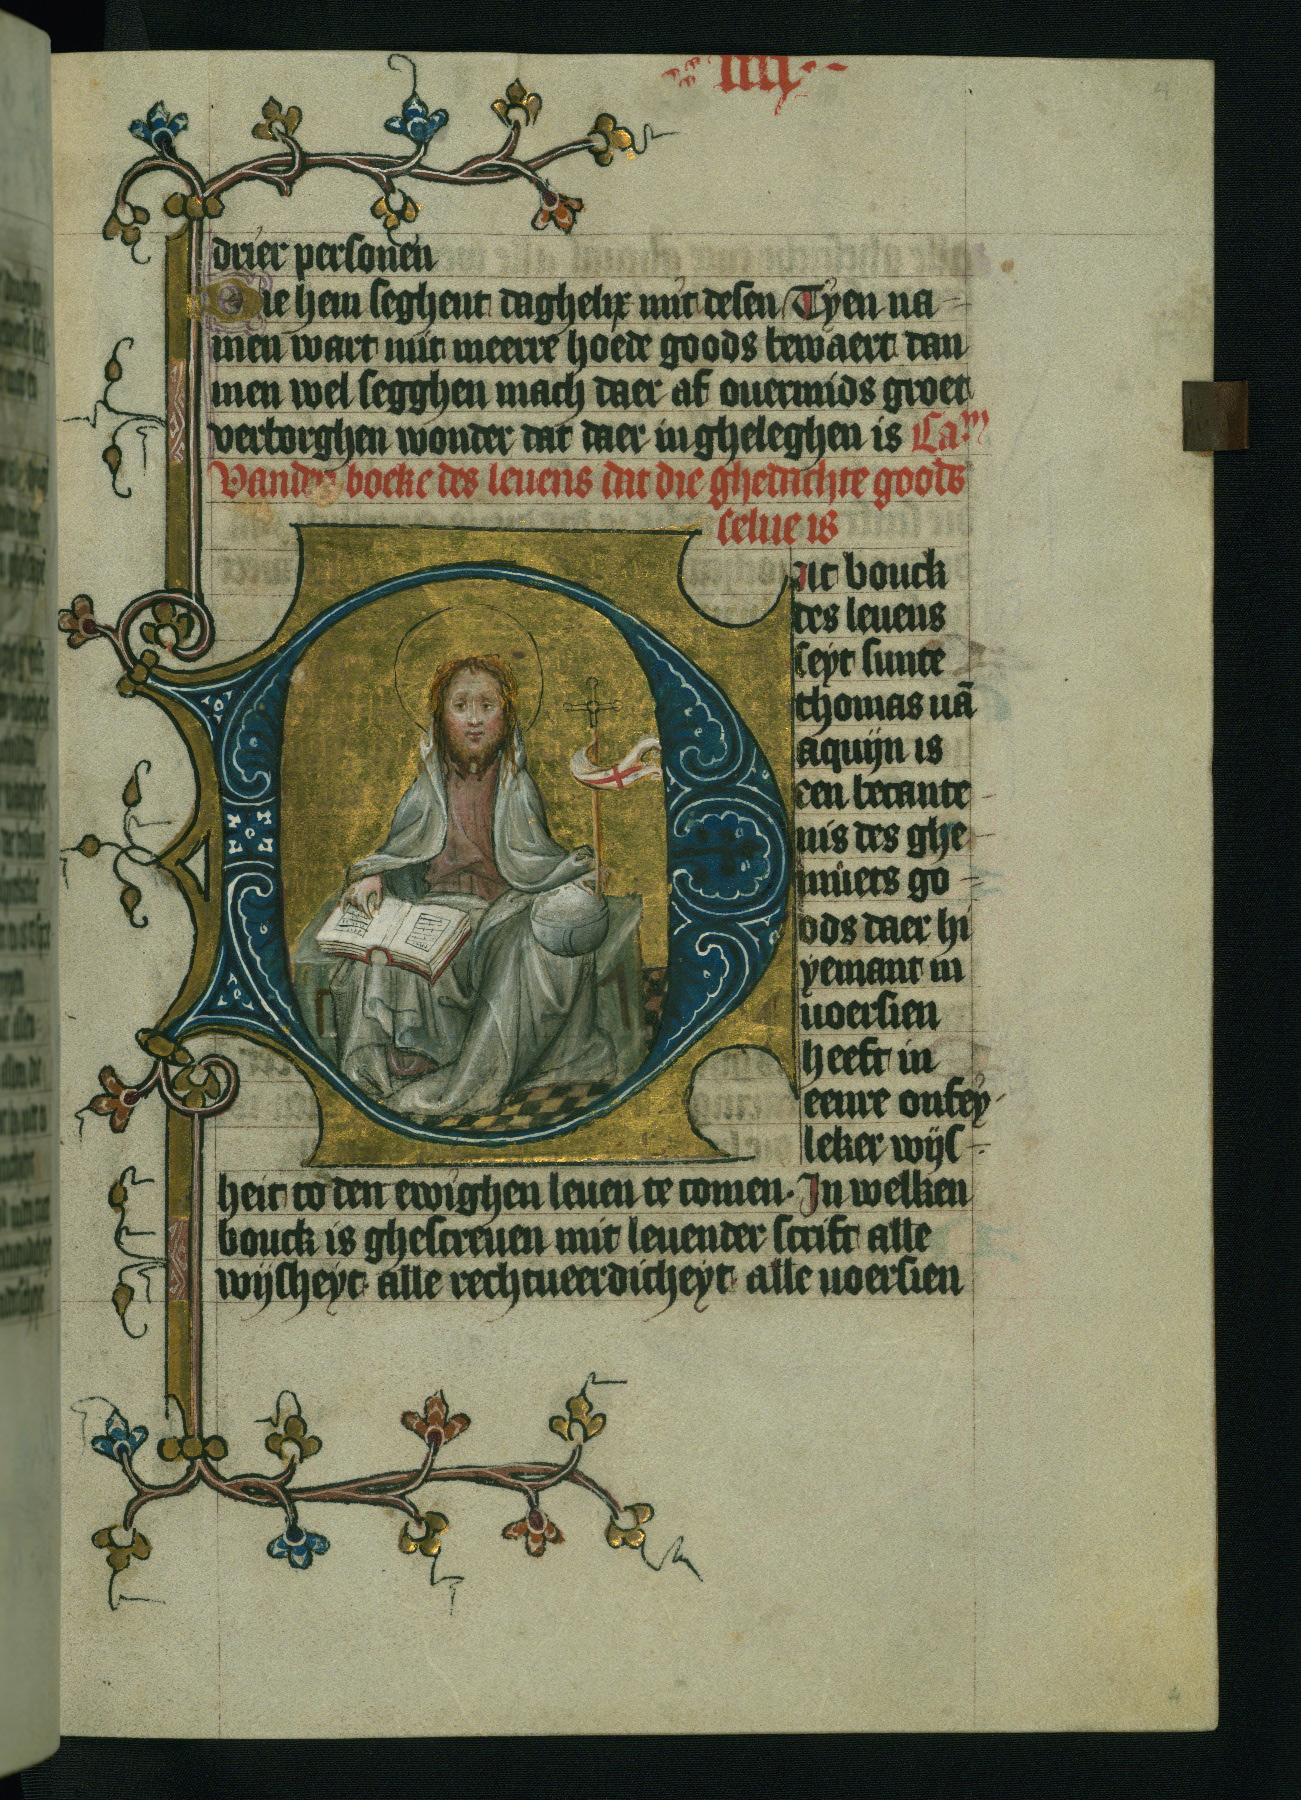 iiii
drier personen
Die hem seghent daghelix mit desen Tyen na
men wart mit meerre hoede goods bewaert dan
men wel segghen mach daer af ouermids groet
verborghen wonder dat daer in gheleghen is Cam
Vanden boeke des leuens dat die ghedachte goods
selue is
Dit bouck
des leuens
seyt sunte
thomas uā
aquijn is
een becante
nis des ghe
mūets go
ods daer hi
yemant in
uoersien
heeft in
eenre onsey
leker wijs
heit to den ewighen leuen te comen. In welken
bouck is ghescreuen mit leuender scrift alle
wijsheyt alle rechtueerdicheyt alle uoersien